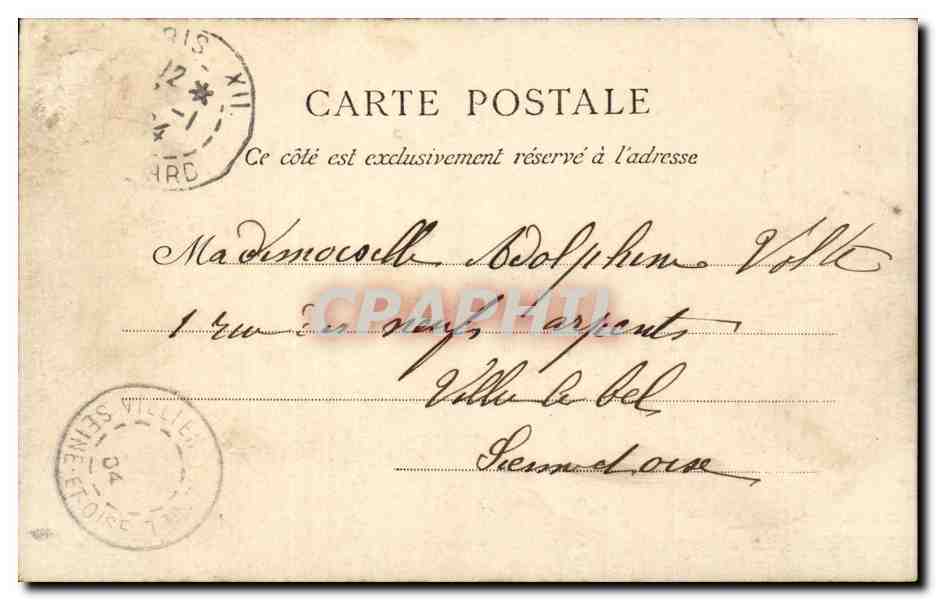 CARTE POSTALE
Ce côté est exclusivement réservé à l'adresse
Mademoiselle Adolphine Volte
1 rue des neufs arpents
Villier le bel
Seine et oise
CPAPHIL
RIS XII
12
-1
ARD
VILLIER
04
SEINE-ET-OISE